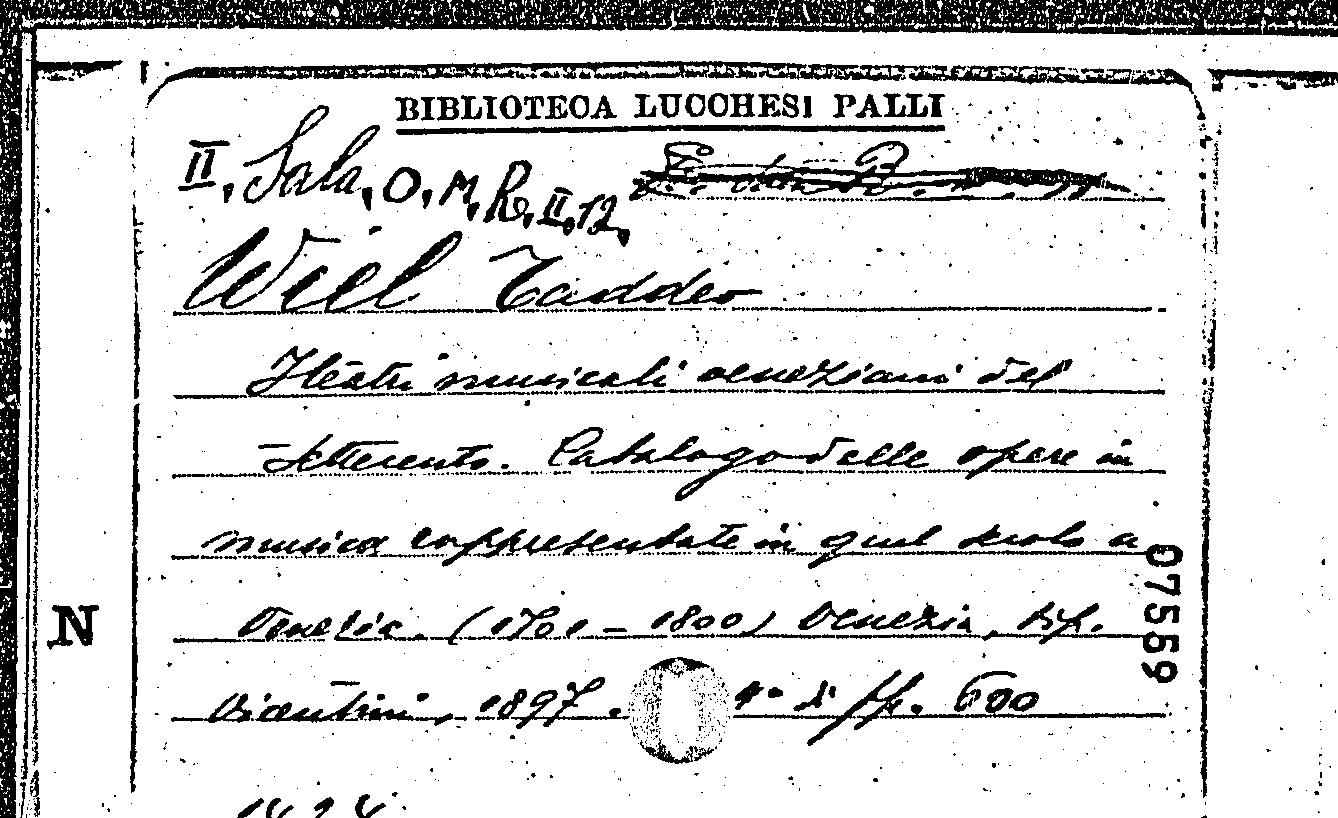 BIBLIOTECA LUCCHESI PALLI
II, Sala, O, M, R, II, 12,
Wiel Taddeo
I teatri musicali veneziani del
Settecento. Catalogo delle opere in
musica rappresentate in quel secolo a
Venezia. (1701 - 1800) Venezia, tip.
Visentini, 1897. 4° di pp. 600
07559
N